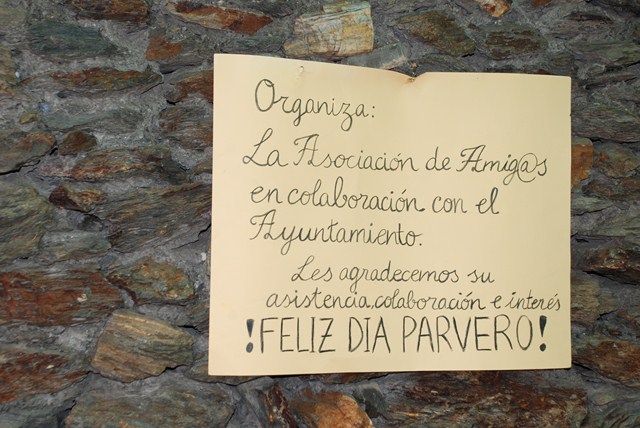 Organiza:
La Asociación de Amig@s
en colaboración con el
Ayuntamiento.
Les agradecemos su
asistencia,colaboración e interés
!FELIZ DIA PARVERO!